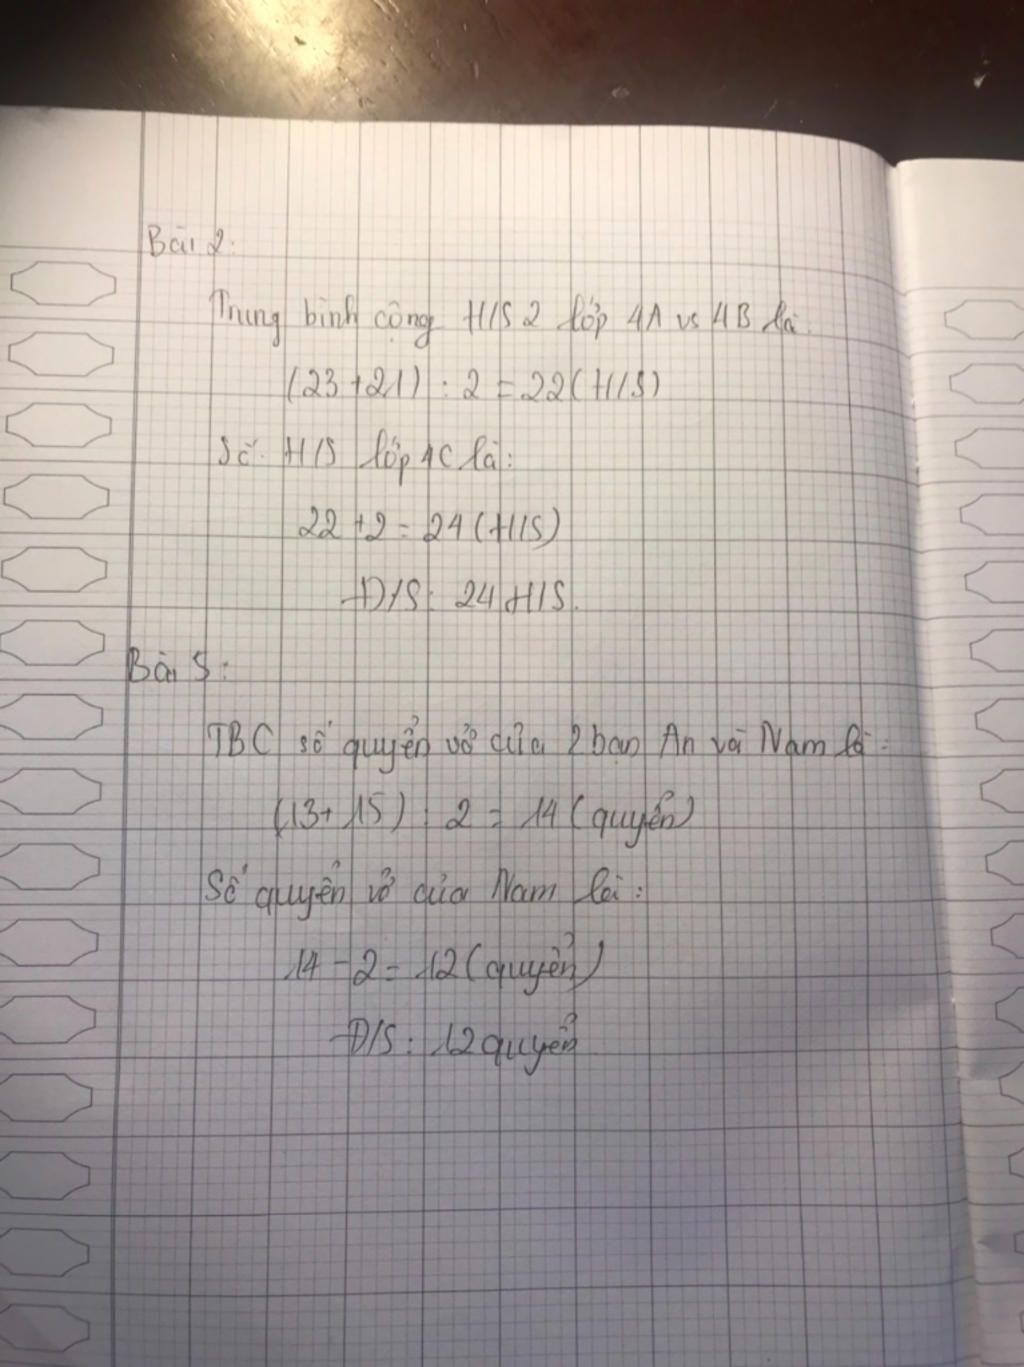 Bài 2:
Trung bình cộng H/S 2 lớp 4A vs 4B là.
(23+21) : 2 = 22 (H/S)
Số H/S lớp 4C là:
22 + 2 = 24 (H/S)
Đ/S: 24 H/S.
Bài 5:
TBC số quyển vở của 2 bạn An và Nam là:
(13+ 15) : 2 = 14 (quyển)
Số quyển vở của Nam là:
14 - 2 = 12 (quyển)
Đ/S: 12 quyển